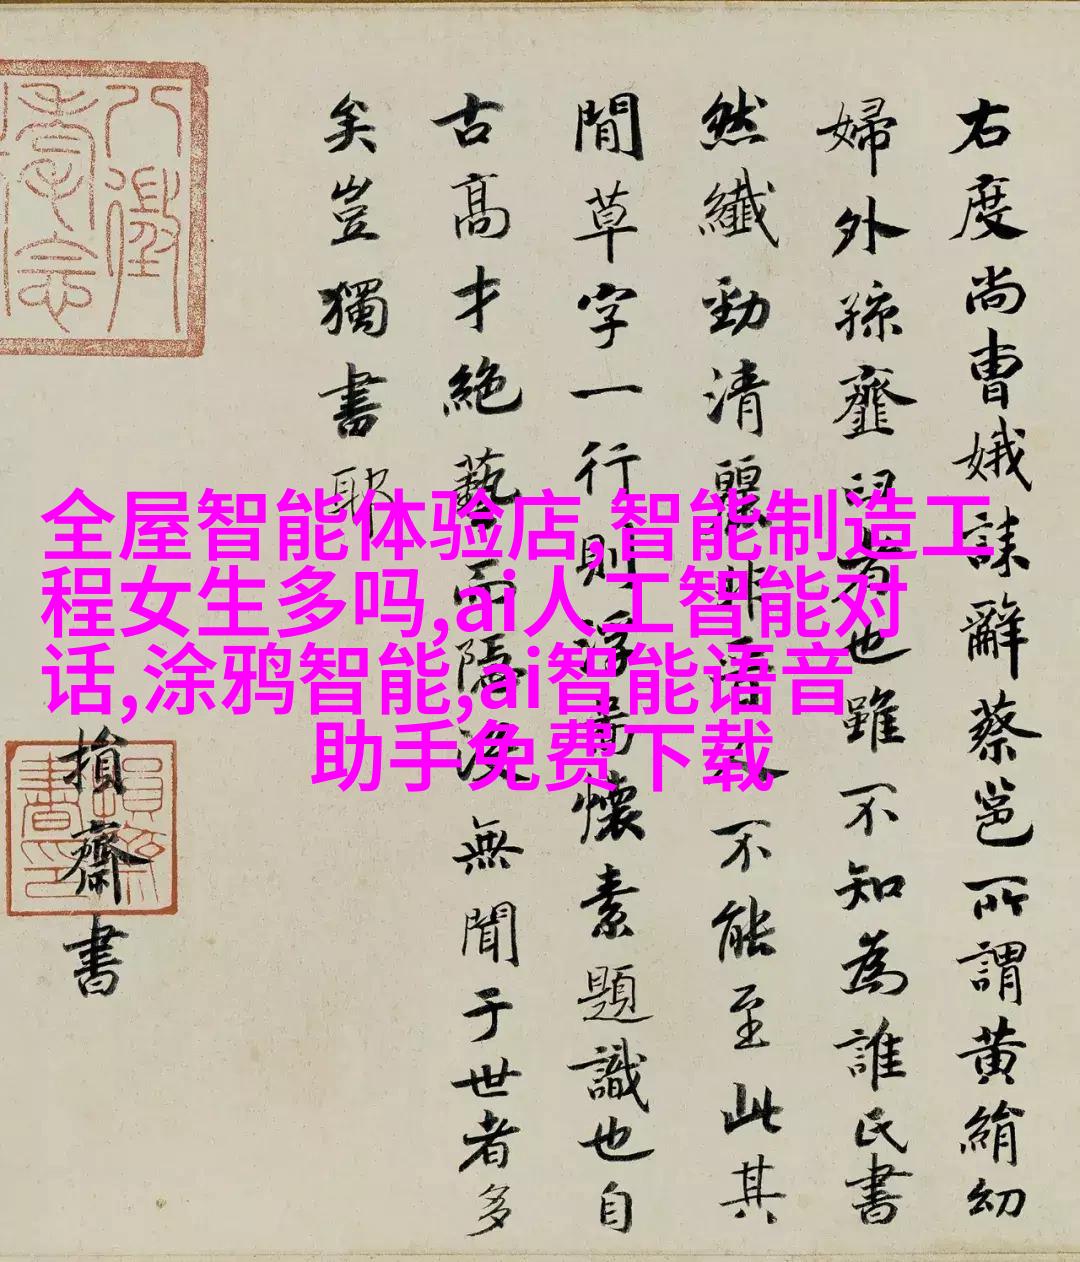 右度尚曹娥誄辭蔡邕所謂黄絹幼
婦外孫齏臼者也雖不知為誰氏書
然纖勁清麗非晉人不能至此其
閒草字一行則浮屠懷素題識也自
古高才絕藝而隱没無聞于世者多
矣豈獨書耶
損齋書
全屋智能体验店,智能制造工
程女生多吗,ai人工智能对
话,涂鸦智能,ai智能语音
助手免费下载